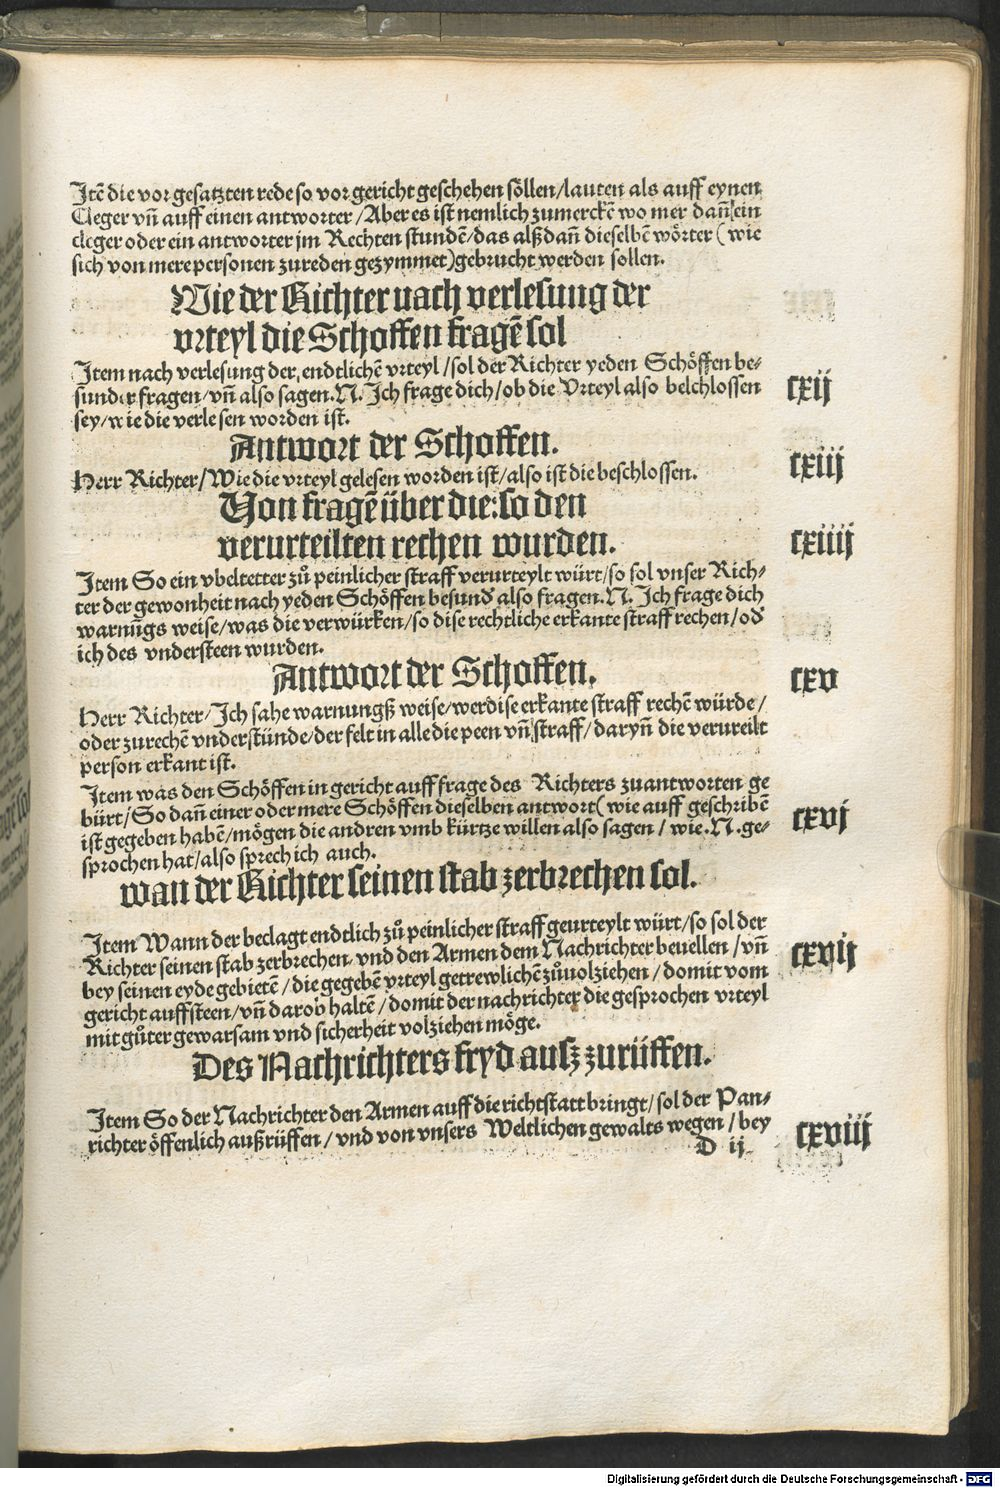 Jtē die vor gesatzten rede so vor gericht geschehen söllen/lauten als auff eynen
Cleger vn̄ auff einen antworter/Aber es ist nemlich zumerckē wo mer dan̄ ein
cleger oder ein antworter jm Rechten stundē/das alßdan̄ dieselbē wörter (wie
sich von mere personen zureden gezymmet)gebrucht werden sollen.
Wie der Richter nach verlesung der
vrteyl die Schoffen fragē sol
Jtem nach verlesung der endtlichē vrteyl/sol der Richter yeden Schöffen be-
sunder fragen/vn̄ also sagen.N. Jch frage dich/ob die Vrteyl also beschlossen
sey/wie die verlesen worden ist.
cxij
Antwort der Schoffen.
Herr Richter/Wie die vrteyl gelesen worden ist/also ist die beschlossen.
cxiij
Von fragē über die: so den
verurteilten rechen wurden.
cxiiij
Jtem So ein vbeltetter zů peinlicher straff verurteylt würt/so sol vnser Rich-
ter der gewonheit nach yeden Schöffen besund̄ also fragen.N. Jch frage dich
warnūgs weise/was die verwürken/so dise rechtliche erkante straff rechen/od̄
ich des vndersteen wurden.
Antwort der Schoffen.
cxv
Herr Richter/Jch sahe warnungß weise/wer dise erkante straff rechē würde/
oder zurechē vnderstünde/der felt in alle die peen vn̄ straff/daryn̄ die verureilt
person erkant ist.
Jtem was den Schöffen in gericht auff frage des Richters zuantworten ge
bürt/So dan̄ einer oder mere Schöffen dieselben antwort(wie auff geschribē
ist gegeben habē/mögen die andren vmb kürtze willen also sagen/wie.N.ge-
sprochen hat/also sprech ich auch.
cxvj
wan der Richter seinen stab zerbrechen sol.
Jtem Wann der beclagt endtlich zů peinlicher straff geurteylt würt/so sol der
Richter seinen stab zerbrechen vnd den Armen dem Nachrichter beuellen/vn̄
bey seinen eyde gebietē/die gegebē vrteyl getrewlichē zůuolziehen/domit vom
gericht auffsteen/vn̄ darob haltē/domit der nachrichter die gesprochen vrteyl
mit gůter gewarsam vnd sicherheit volziehen möge.
cxvij
Des Nachrichters fryd ausz zurüffen.
Jtem So der Nachrichter den Armen auff die richtstatt bringt/sol der Pan-
richter öffenlich außrüffen/vnd von vnsers Weltlichen gewalts wegen/bey
cxviij
D ij
Digitalisierung gefördert durch die Deutsche Forschungsgemeinschaft - DFG